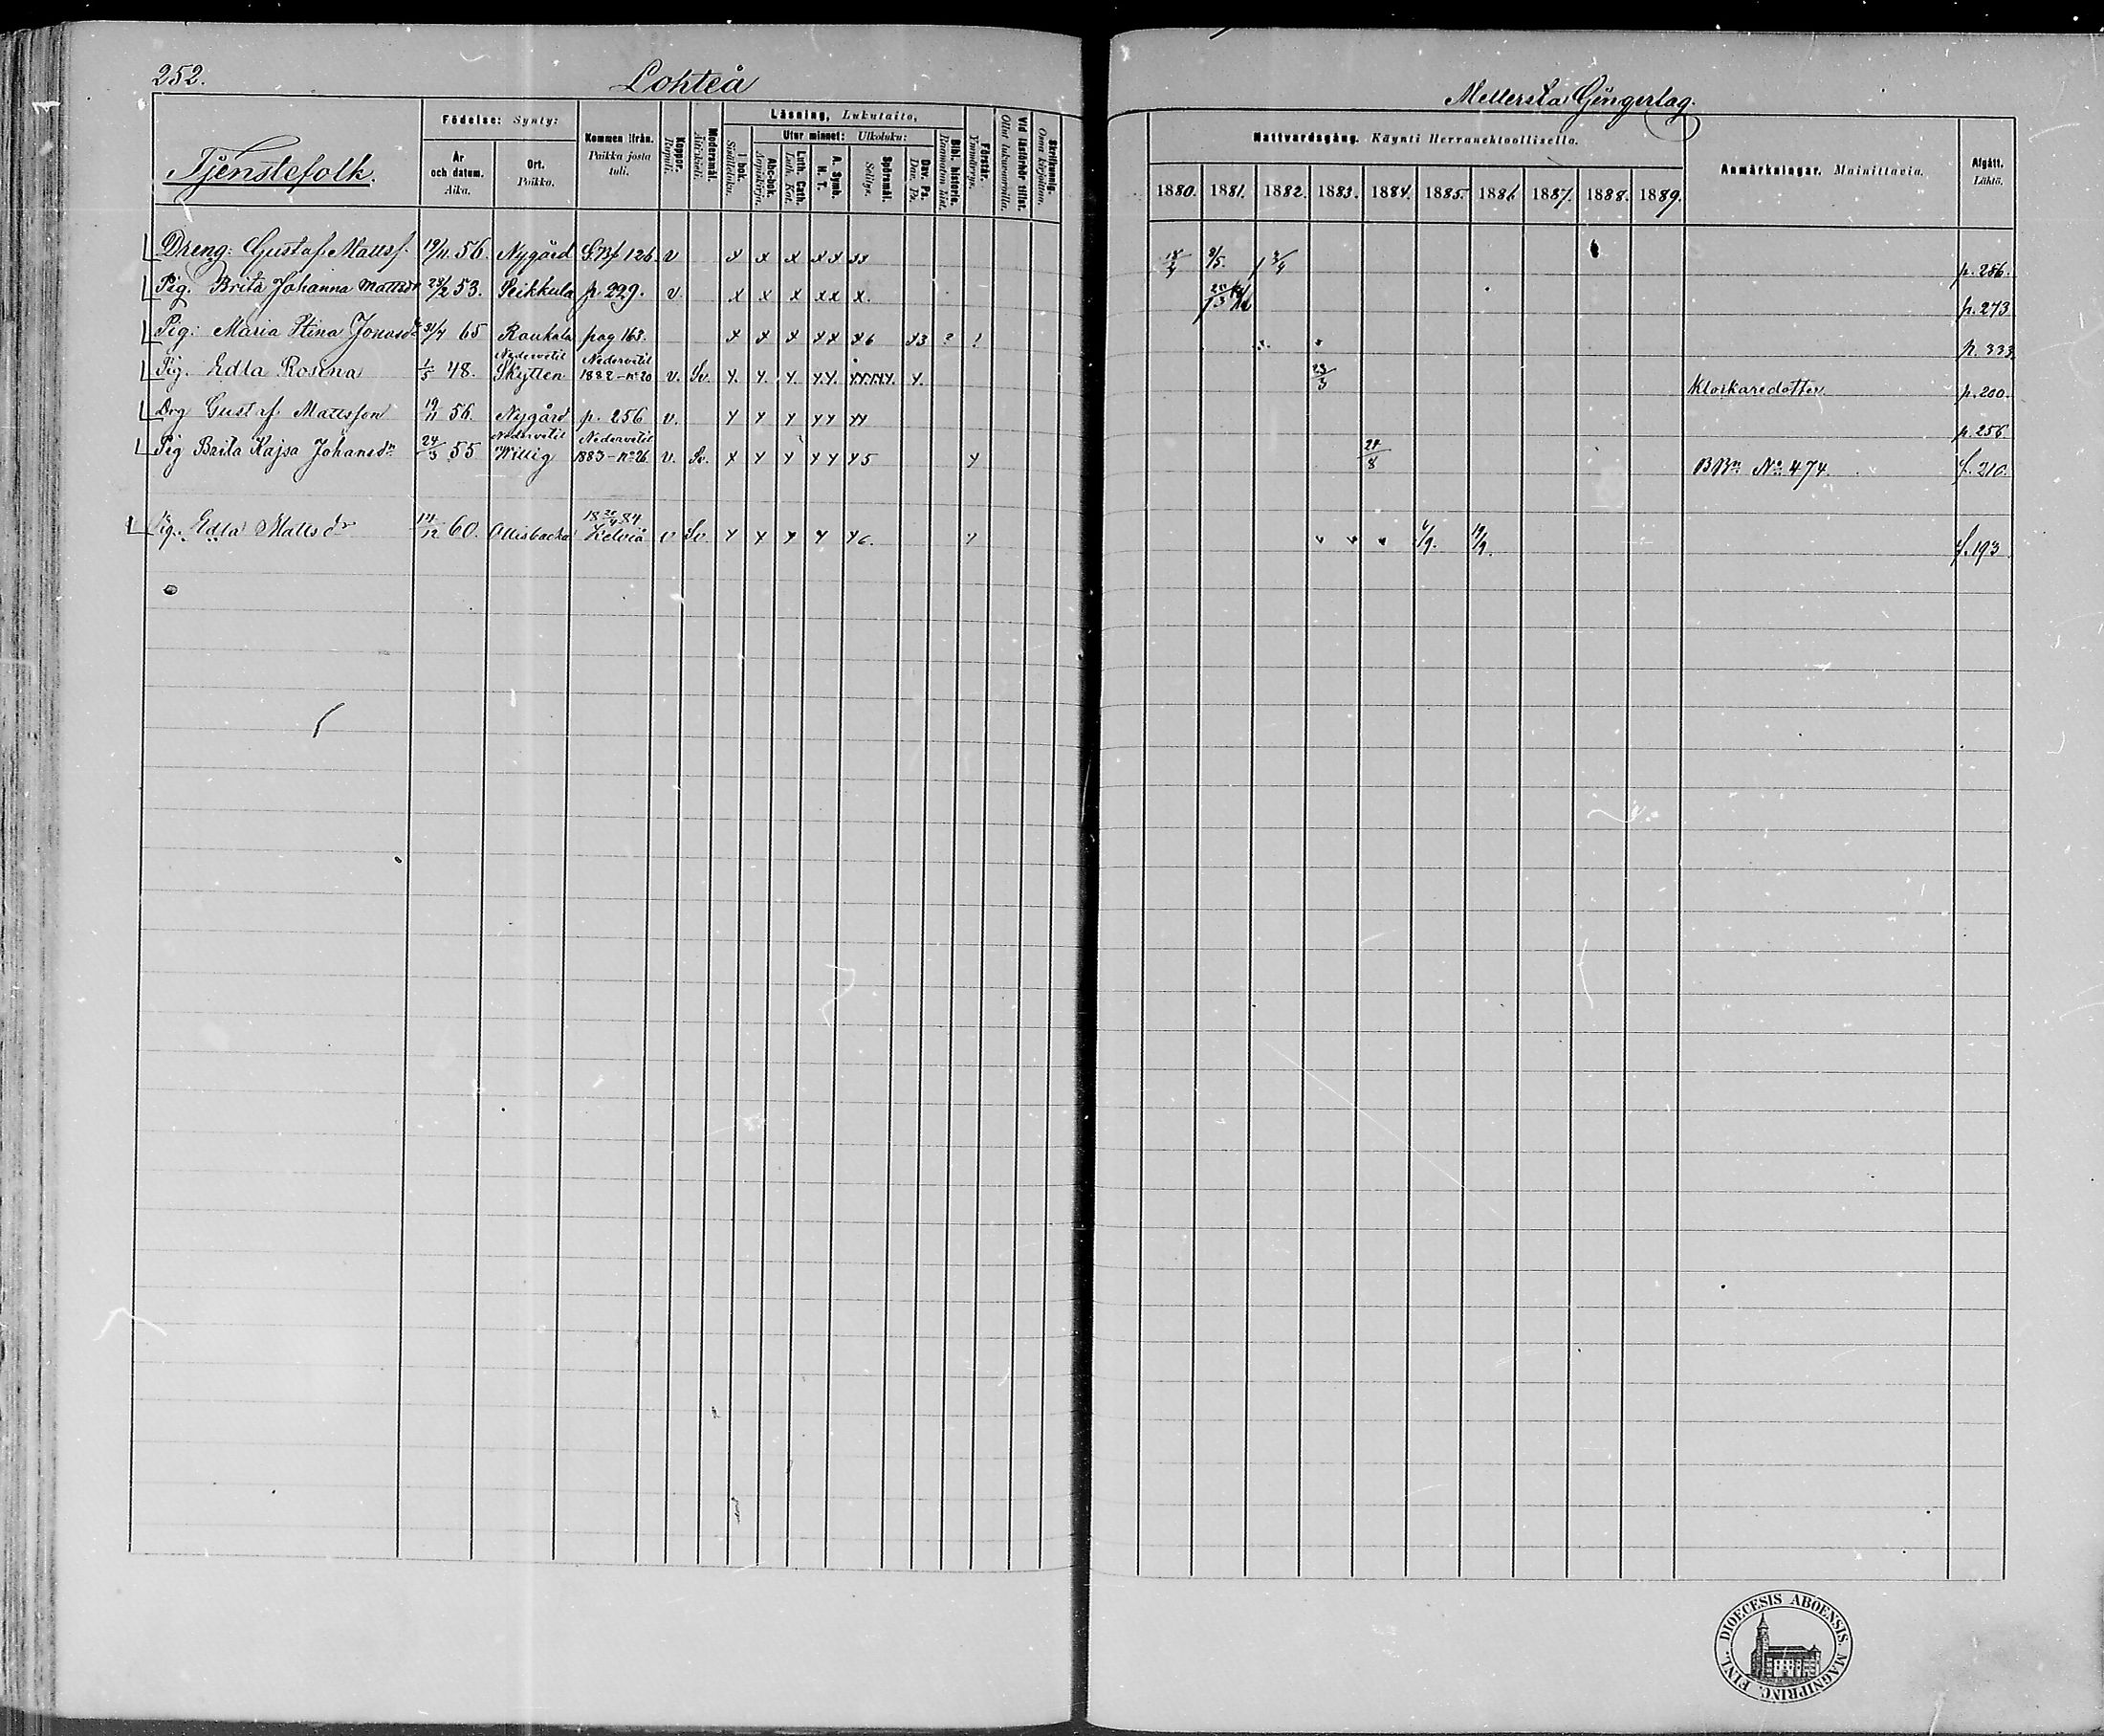 252. Lohteå
Mellersta Gingerlag.
Tjenstefolk.
Födelse: Synty:
År och datum. Aika.
Ort. Paikka.
Kommen ifrån. Paikka josta tuli.
Koppor. Rupuli.
Modersmål. Äitinkieli.
Läsning, Lukutaito.
I bok. Sisältäluku.
Utur minnet: Ulkoluku:
Abc-bok. Aapiskirja.
Luth. Cath. Luth. Kat.
A. Symb. H. T.
Spörsmål. Selitys.
Dav. Ps. Dav. Ps.
Bibl. historia. Raamatun hist.
Förstår. Ymmärrys.
Vid läsförhör tillst. Ollut lukuvuoroilla.
Skrifkunnig. Osaa kirjoittaa.
Nattvardsgång. Käynti Herranehtoollisella.
1880. 1881. 1882. 1883. 1884. 1885. 1886 1887. 1888. 1889.
Anmärkningar. Mainittavia.
Afgått. Lähtö.
Dreng: Gustaf Mattsf. 19/11 56. Nygård 126 v x x x xx xx 18/4 9/5. 2/4 p. 256.
Pig. Brita Johanna Mattsdr 28/2 53. Seikkula p. 229. v. x x x xx x. 20/3 p. 273
Pig: Maria Stina Jonasdr 31/7 65 Raukala pag 163. x x x xx x6 x3 ? ? p. 333
Pig. Edla Rosina 1/5 48. Nedervetil Skytten Nedervetil 1882-no 20 v. Sv. x x x xx xxxxx x. 23/3 Klockaredotter p. 200.
Drg Gustaf Mattsson 19/11 56. Nygård p. 256 v. x x x xx xx p. 256
Pig Brita Kajsa Johansdr 24/3 55 Nedervetil Willig Nedervetil 1883-No 26 v. Sv. x x x xx x5 x 24/8 No 474. f. 210.
Pig. Edla Mattsdr 14/12 60. Ollisbacka 18 20/4 84 Kelviå v Sv x x x x x6. x 6/9. 19/9. f. 193
DIOECESIS ABOENSIS MAGNIPRINC. FINL.